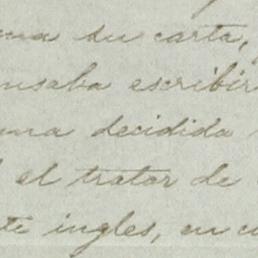 ma su carta,
nsaba escribir
una decidida
el tratar de
te ingles, en cu